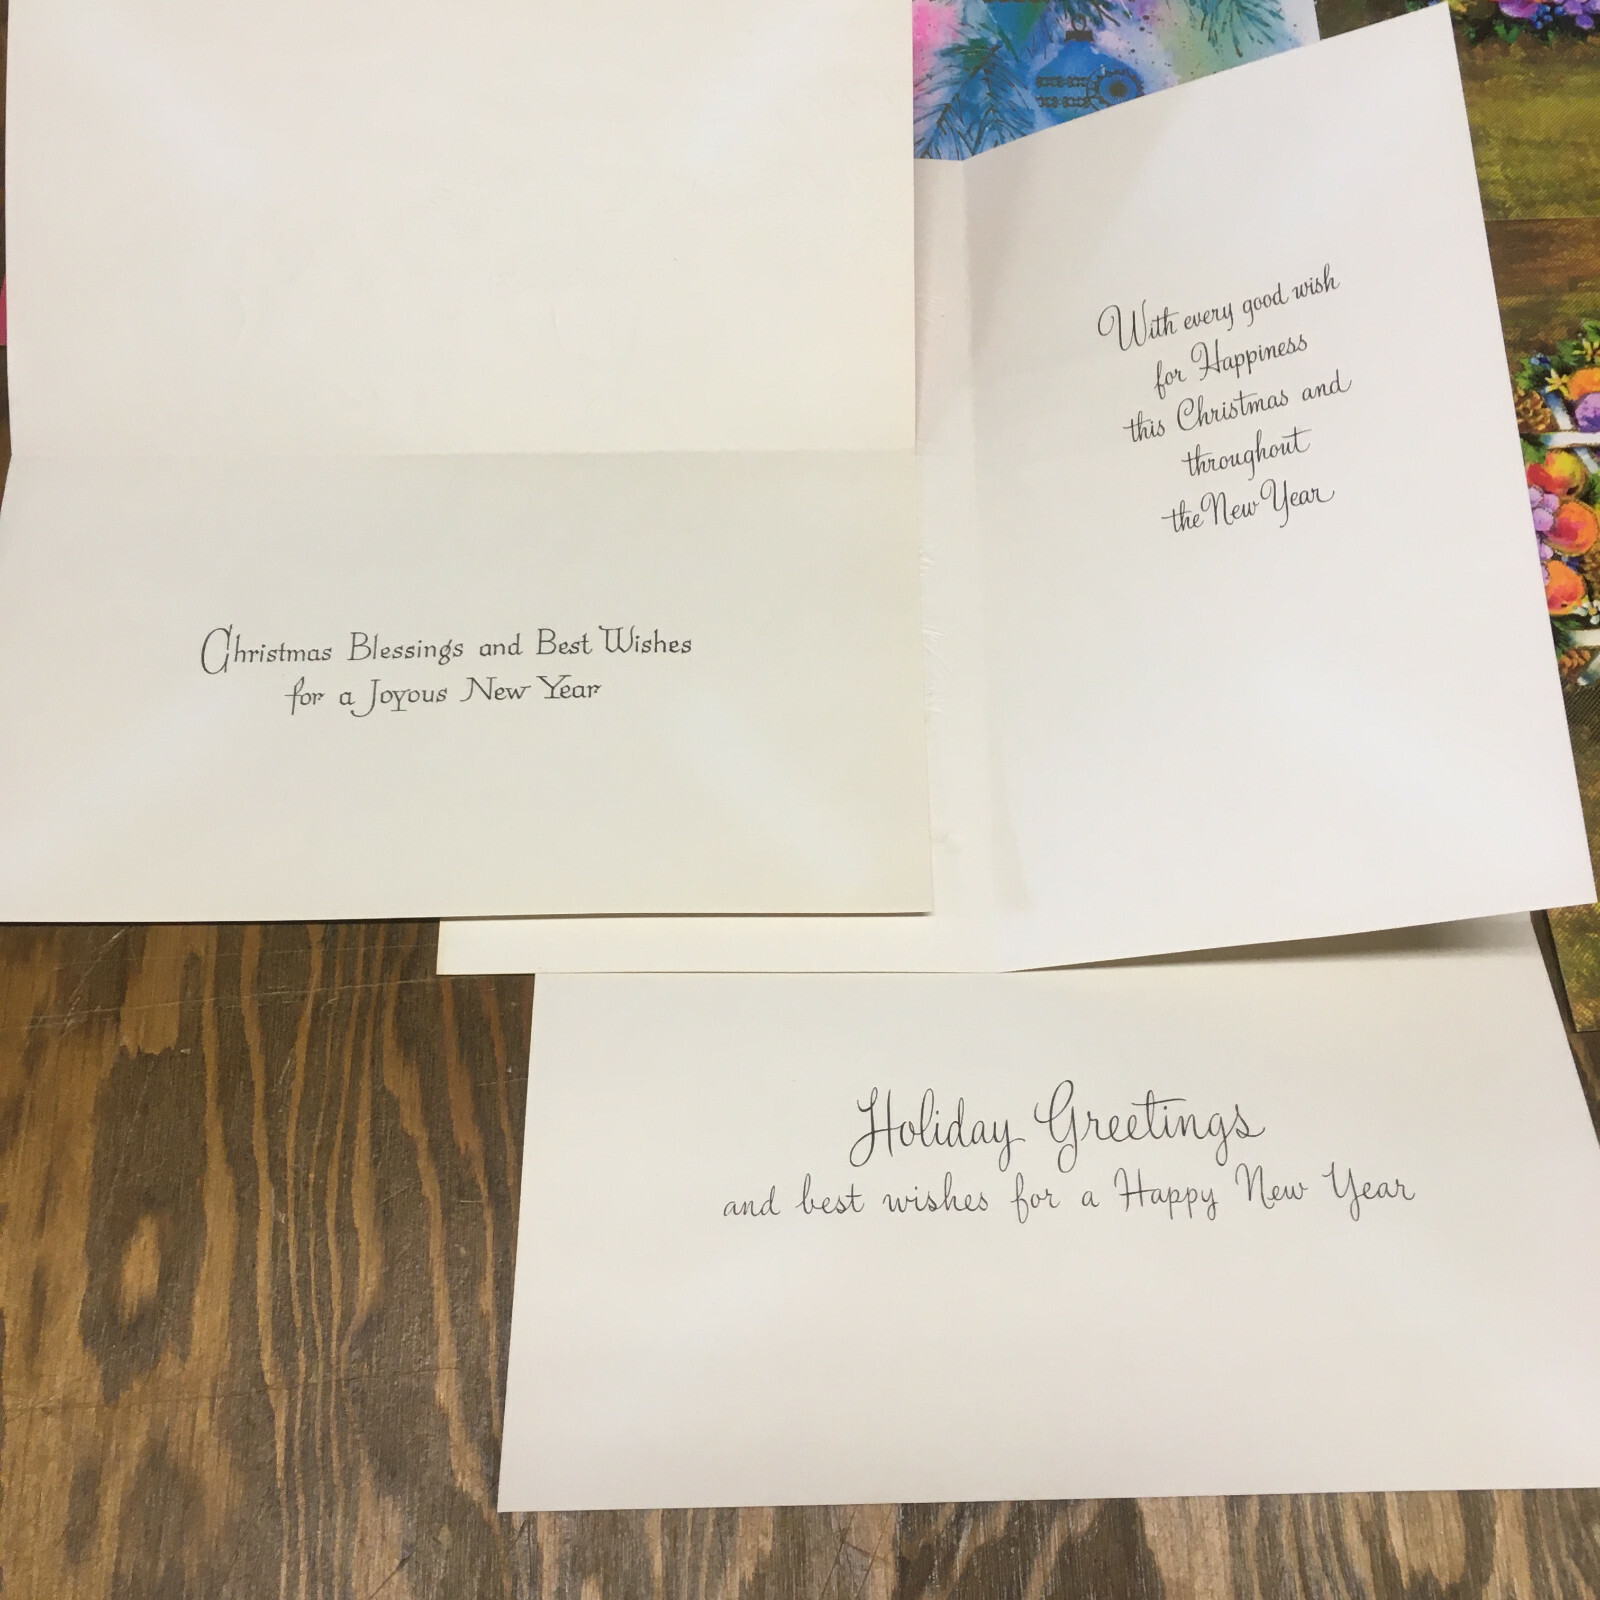 With every good wish
for Happiness
this Christmas and
throughout
the New Year
Christmas Blessings and Best Wishes
for a Joyous New Year
Holiday Greetings
and best wishes for a Happy New Year